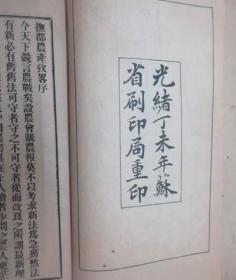 光緒丁未年蘇
省刷印局重印
撫郡農產攷畧序
今天下競言農戰矣設農會購農報莫不以考求新法為急務然法
有新必有舊舊法可守者守之不可守者從而改良之所謂最新理